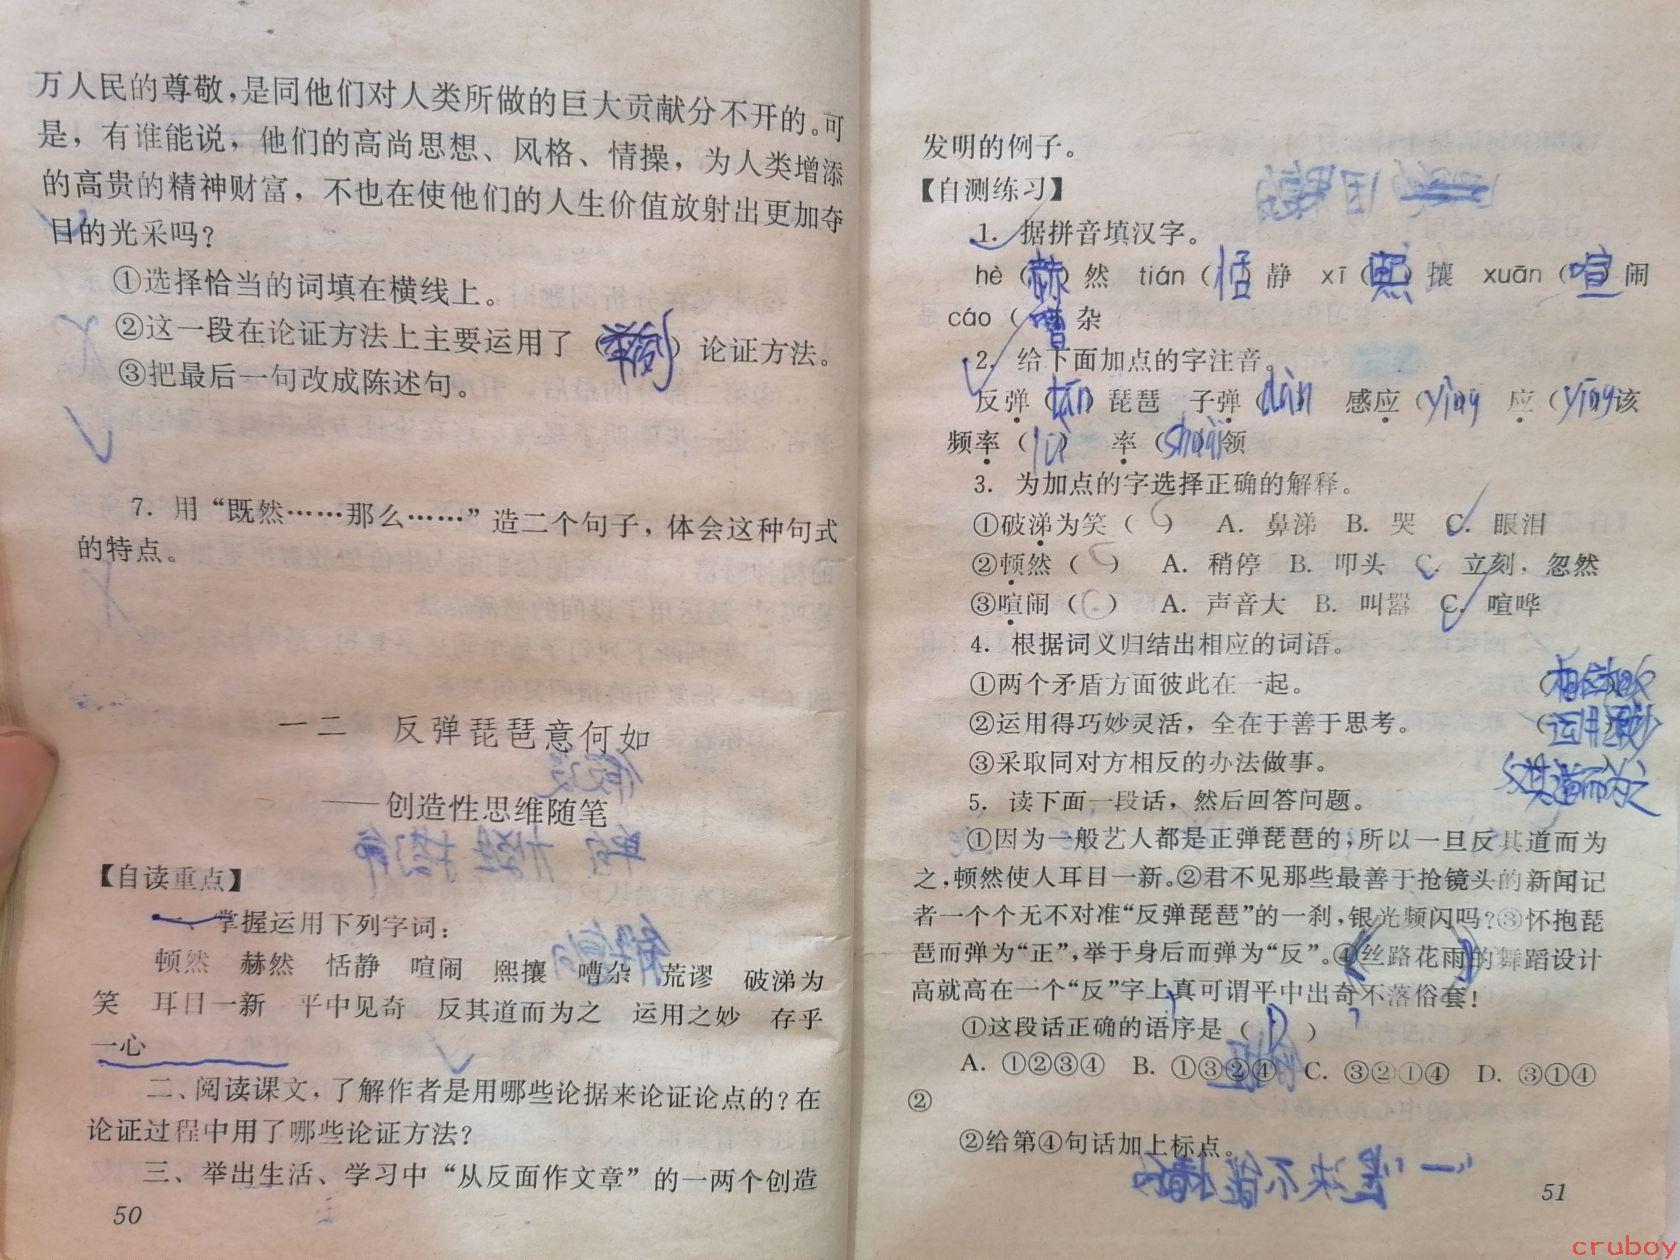 万人民的尊敬，是同他们对人类所做的巨大贡献分不开的。可
是，有谁能说，他们的高尚思想、风格、情操，为人类增添
的高贵的精神财富，不也在使他们的人生价值放射出更加夺
目的光采吗？
①选择恰当的词填在横线上。
②这一段在论证方法上主要运用了（举例）论证方法。
③把最后一句改成陈述句。
7. 用“既然……那么……”造二个句子，体会这种句式
的特点。
一二 反弹琵琶意何如
——创造性思维随笔
【自读重点】
一、掌握运用下列字词：
顿然 赫然 恬静 喧闹 熙攘 嘈杂 荒谬 破涕为
笑 耳目一新 平中见奇 反其道而为之 运用之妙 存乎
一心
二、阅读课文，了解作者是用哪些论据来论证论点的？在
论证过程中用了哪些论证方法？
三、举出生活、学习中“从反面作文章”的一两个创造
50
发明的例子。
【自测练习】
1. 据拼音填汉字。
hè（赫）然 tián（恬）静 xī（熙）攘 xuān（喧）闹
cáo（嘈）杂
2. 给下面加点的字注音。
反弹（tán）琵琶 子弹（dàn） 感应（yìng） 应（yīng）该
频率（lǜ） 率（shuài）领
3. 为加点的字选择正确的解释。
①破涕为笑（C） A. 鼻涕 B. 哭 C. 眼泪
②顿然（C） A. 稍停 B. 叩头 C. 立刻，忽然
③喧闹（C） A. 声音大 B. 叫嚣 C. 喧哗
4. 根据词义归结出相应的词语。
①两个矛盾方面彼此在一起。（）
②运用得巧妙灵活，全在于善于思考。（）
③采取同对方相反的办法做事。反其道而为之
5. 读下面一段话，然后回答问题。
①因为一般艺人都是正弹琵琶的，所以一旦反其道而为
之，顿然使人耳目一新。②君不见那些最善于抢镜头的新闻记
者一个个无不对准“反弹琵琶”的一刹，银光频闪吗？③怀抱琵
琶而弹为“正”，举于身后而弹为“反”。④《丝路花雨》的舞蹈设计
高就高在一个“反”字上，真可谓平中出奇，不落俗套！
①这段话正确的语序是（D）
A. ①②③④ B. ①③②④ C. ③②①④ D. ③①④
②
②给第④句话加上标点。
51
cruboy